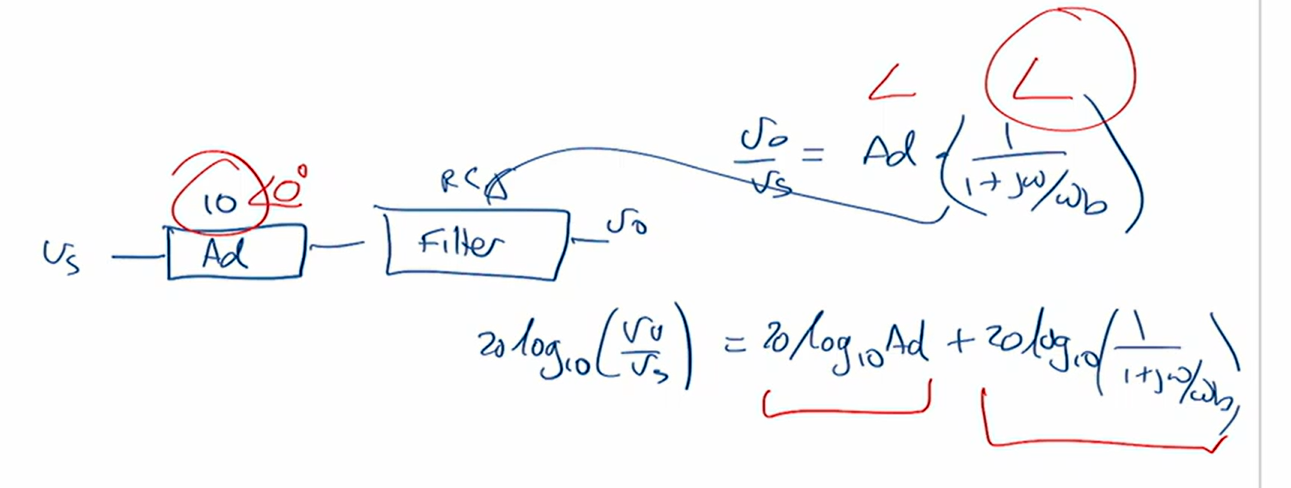 ∠ ∠
vo/vs = Ad (1/(1+jω/ωb))
10 ∠0°
RC
vs Ad Filter vo
20 log10(vo/vs) = 20 log10 Ad + 20 log10(1/(1+jω/ωb))